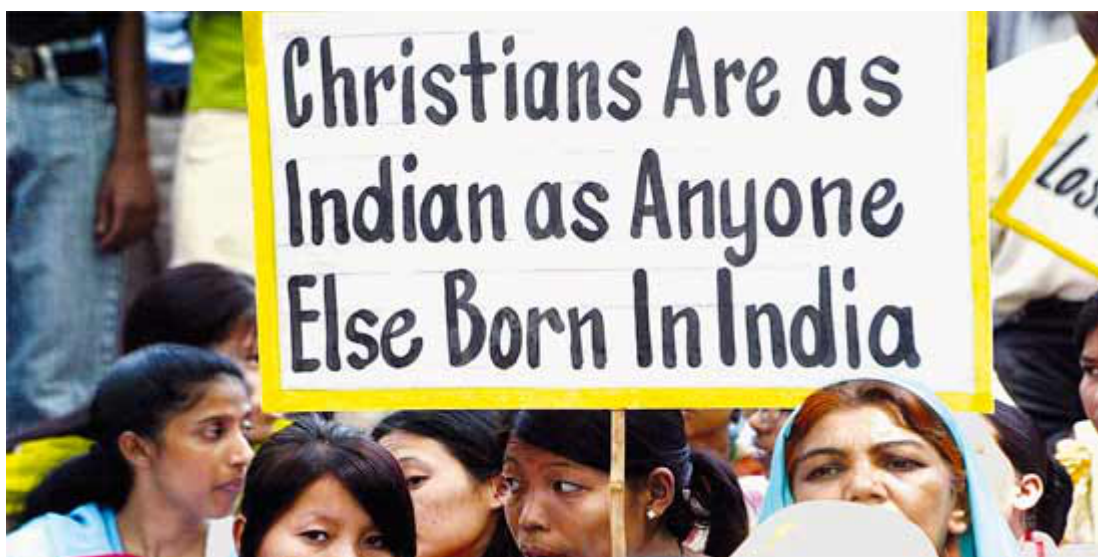 Christians Are as
Indian as Anyone
Else Born In India